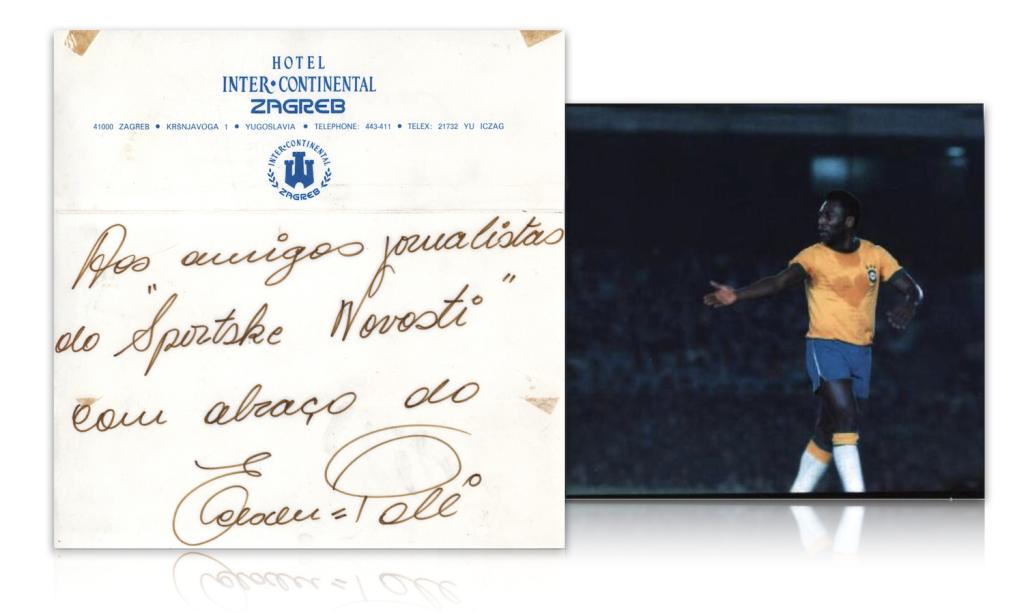 HOTEL
INTER•CONTINENTAL
ZAGREB
41000 ZAGREB • KRŠNJAVOGA 1 • YUGOSLAVIA • TELEPHONE: 443-411 • TELEX: 21732 YU ICZAG
INTER•CONTINENTAL
ZAGREB
Aos amigos jornalistas
do "Sportske Novosti"
com abraço do
Edson = Pelé